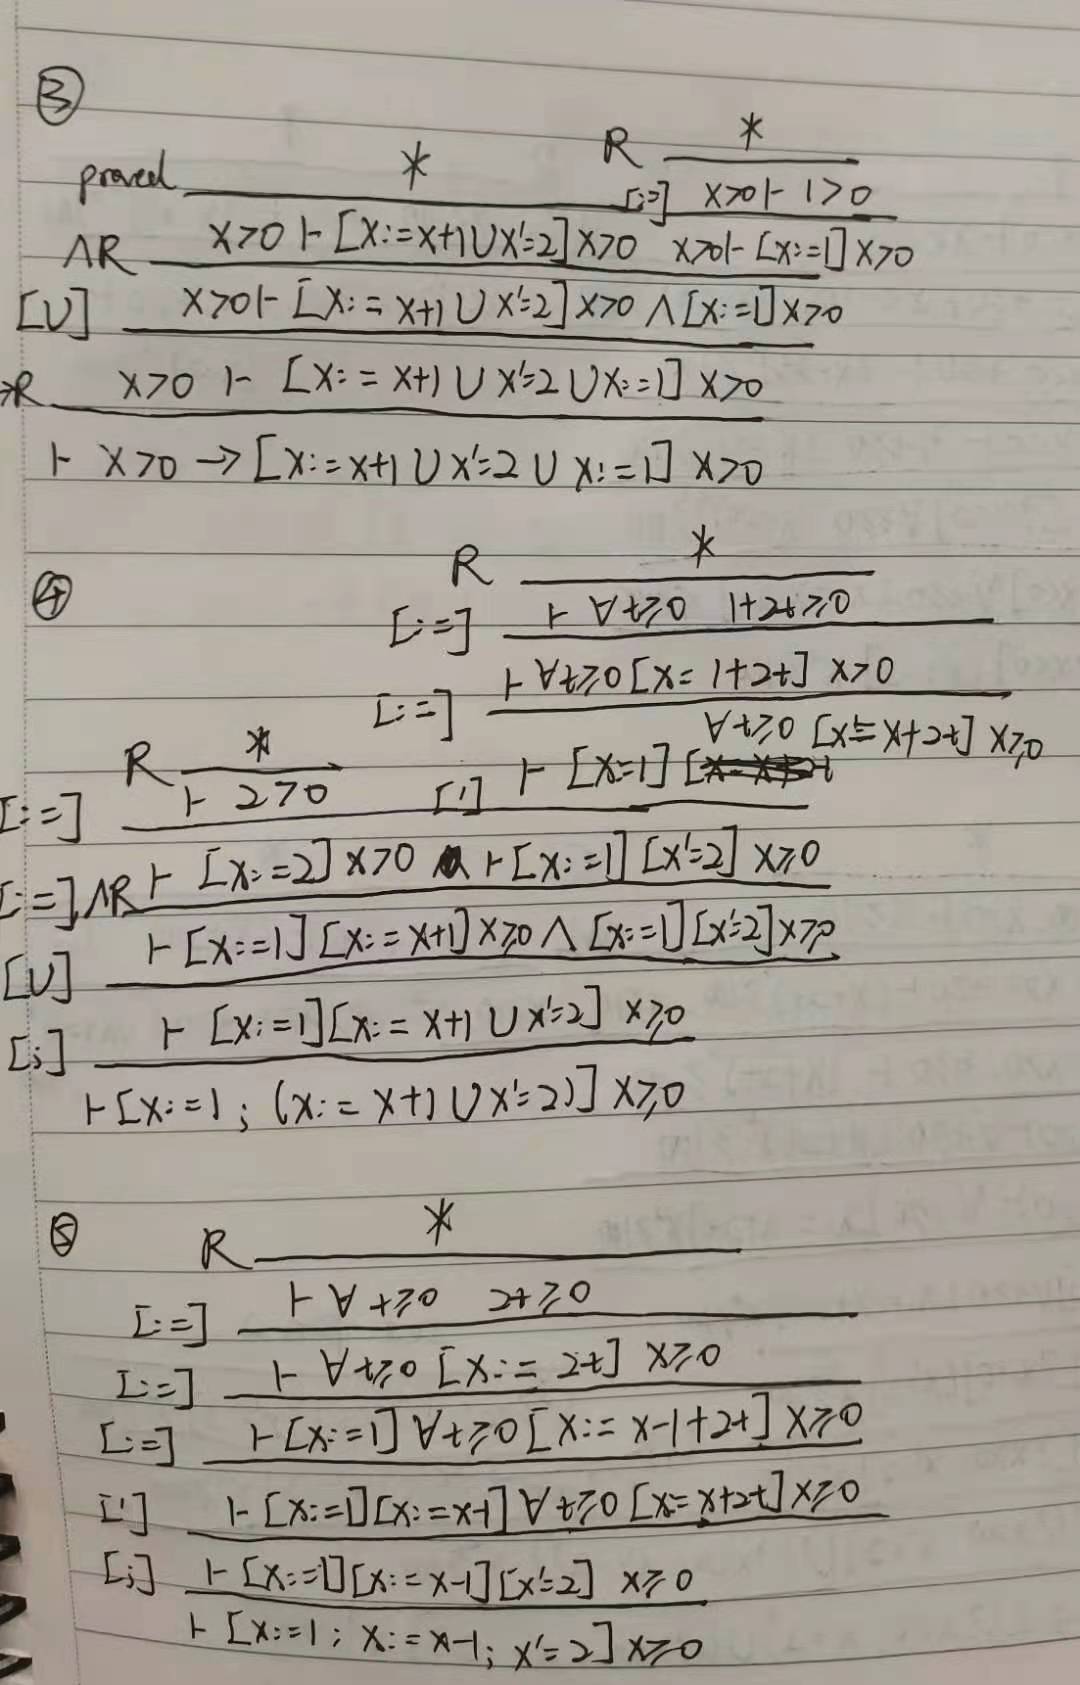 ③
R *
proved * [:=] x>0 ⊢ 1>0
∧R x>0 ⊢ [x:=x+1∪x'=2]x>0 x>0⊢[x:=1]x>0
[∪] x>0⊢ [x:=x+1∪x'=2]x>0 ∧[x:=1]x>0
→R x>0 ⊢ [x:=x+1∪x'=2∪x:=1]x>0
⊢ x>0 → [x:=x+1∪x'=2∪x:=1] x>0
④
R *
[:=] ⊢ ∀t≥0 1+2t≥0
[:=] ⊢ ∀t≥0[x= 1+2t] x>0
R * ['] ⊢ [x=1] ∀t≥0 [x:=x+2t] x≥0
[:=] ⊢ 2>0
[:=],∧R ⊢ [x:=2]x>0 ⊢[x:=1][x'=2] x≥0
[∪] ⊢[x:=1][x:=x+1]x≥0 ∧ [x:=1][x'=2]x≥0
[;] ⊢ [x:=1][x:=x+1∪x'=2] x≥0
⊢[x:=1; (x:=x+1∪x'=2)] x≥0
⑤
R *
[:=] ⊢ ∀t≥0 2t≥0
[:=] ⊢ ∀t≥0 [x:= 2t] x≥0
[:=] ⊢[x:=1]∀t≥0[x:= x-1+2t] x≥0
['] ⊢[x:=1][x:=x-1]∀t≥0[x=x+2t]x≥0
[;] ⊢[x:=1][x:=x-1][x'=2] x≥0
⊢ [x:=1; x:=x-1; x'=2] x≥0